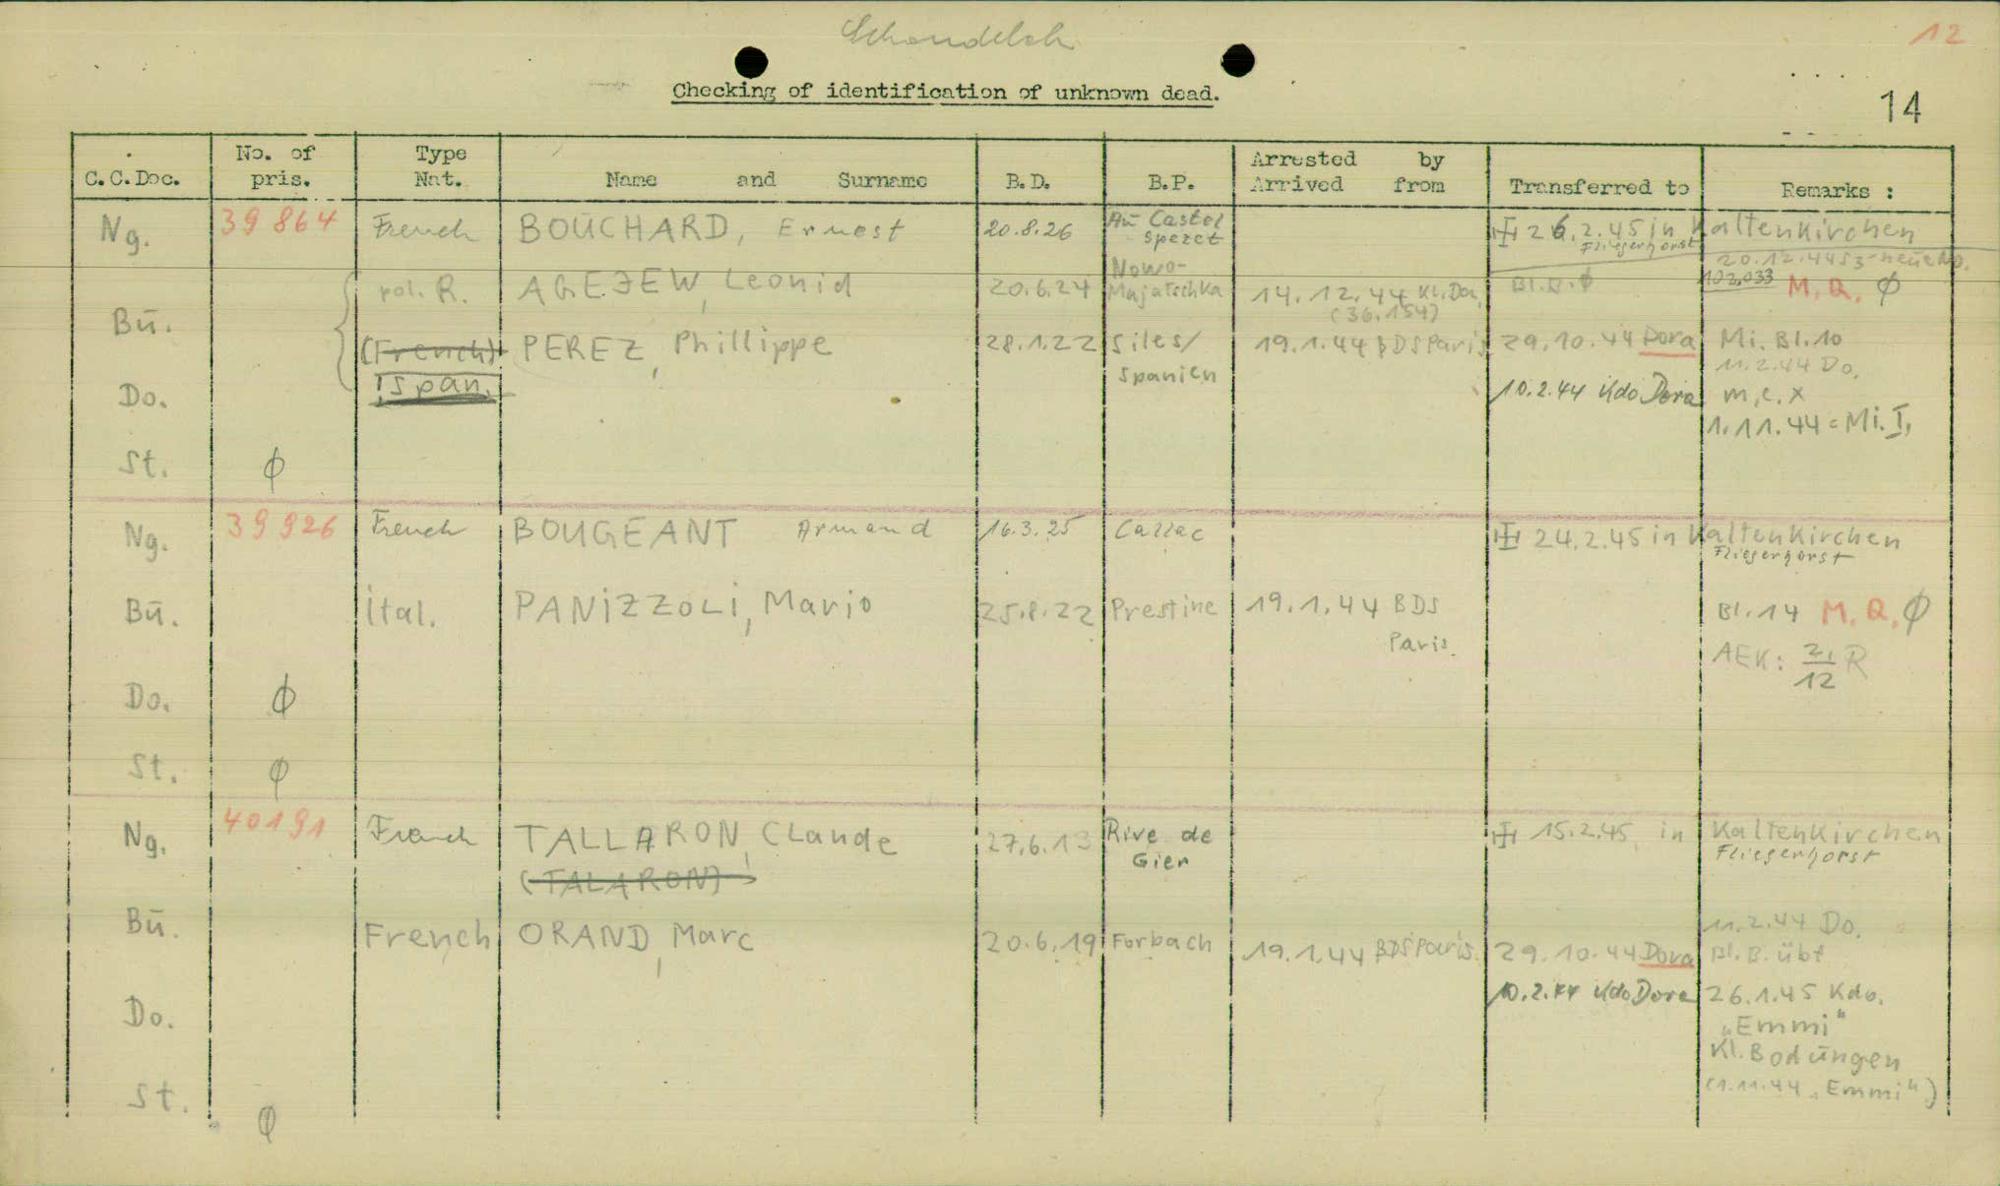 12
Checking of identification of unknown dead.
14
C.C.Doc. No. of pris. Type Nat. Name and Surname B.D. B.P. Arrested by Arrived from Transferred to Remarks :
Ng. 39 864 French BOUCHARD, Ernest 20.8.26 Castel Spezet 26.2.45 in Kaltenkirchen
Fliegerhorst
20.12.44
pol. R. AGEJEW, Leonid 20.6.24 Nowo-Majatschka 14.12.44 Kl. Do. (36.154) Bl. Ø 102,033 M. Q. Ø
Bū. (French) PEREZ, Phillippe 28.1.22 Siles/ 19.1.44 BDS Paris 29.10.44 Dora Mi. Bl. 10
Span. Spanien 11.2.44 Do.
Do. 10.2.44 Kdo Dora m.e.x
1.11.44 = Mi. I,
St. Ø
Ng. 39 926 French BOUGEANT Armand 16.3.25 Callac 24.2.45 in Kaltenkirchen
Fliegerhorst
Bū. Ital. PANIZZOLI, Mario 25.8.22 Prestine 19.1.44 BDS Bl. 14 M. Q. Ø
Paris. AEK: R
12
Do. Ø
St. Ø
Ng. 40191 French TALLARON, Claude 27.6.13 Rive de Gier 15.2.45 in Kaltenkirchen
(TALARON) Fliegerhorst
11.2.44 Do.
Bū. French ORAND, Marc 20.6.19 Forbach 19.1.44 BDS Paris. 29.10.44 Dora Bl. B. übt
10.2.44 Kdo Dora 26.1.45 Kdo.
Do. „Emmi"
Kl. Bodūngen
St. Ø (1.11.44 „Emmi")